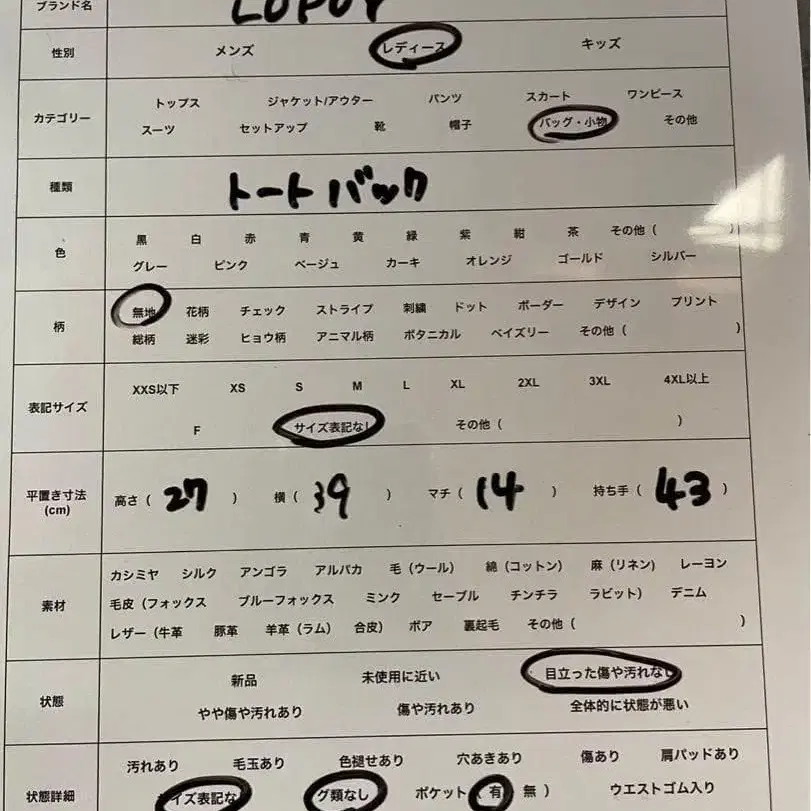 ブランド名
性別 メンズ レディース キッズ
カテゴリー トップス ジャケット/アウター パンツ スカート ワンピース
スーツ セットアップ 靴 帽子 バッグ・小物 その他
種類 トートバック
色 黒 白 赤 青 黄 緑 紫 紺 茶 その他（ ）
グレー ピンク ベージュ カーキ オレンジ ゴールド シルバー
柄 無地 花柄 チェック ストライプ 刺繍 ドット ボーダー デザイン プリント
総柄 迷彩 ヒョウ柄 アニマル柄 ボタニカル ペイズリー その他（ ）
表記サイズ XXS以下 XS S M L XL 2XL 3XL 4XL以上
F サイズ表記なし その他（ ）
平置き寸法 (cm) 高さ（ 27 ） 横（ 39 ） マチ（ 14 ） 持ち手（ 43 ）
素材 カシミヤ シルク アンゴラ アルパカ 毛（ウール） 綿（コットン） 麻（リネン） レーヨン
毛皮（フォックス ブルーフォックス ミンク セーブル チンチラ ラビット） デニム
レザー（牛革 豚革 羊革（ラム） 合皮） ボア 裏起毛 その他（ ）
状態 新品 未使用に近い 目立った傷や汚れなし
やや傷や汚れあり 傷や汚れあり 全体的に状態が悪い
状態詳細 汚れあり 毛玉あり 色褪せあり 穴あきあり 傷あり 肩パッドあり
イズ表記な グ類なし ポケット（ 有 無 ） ウエストゴム入り